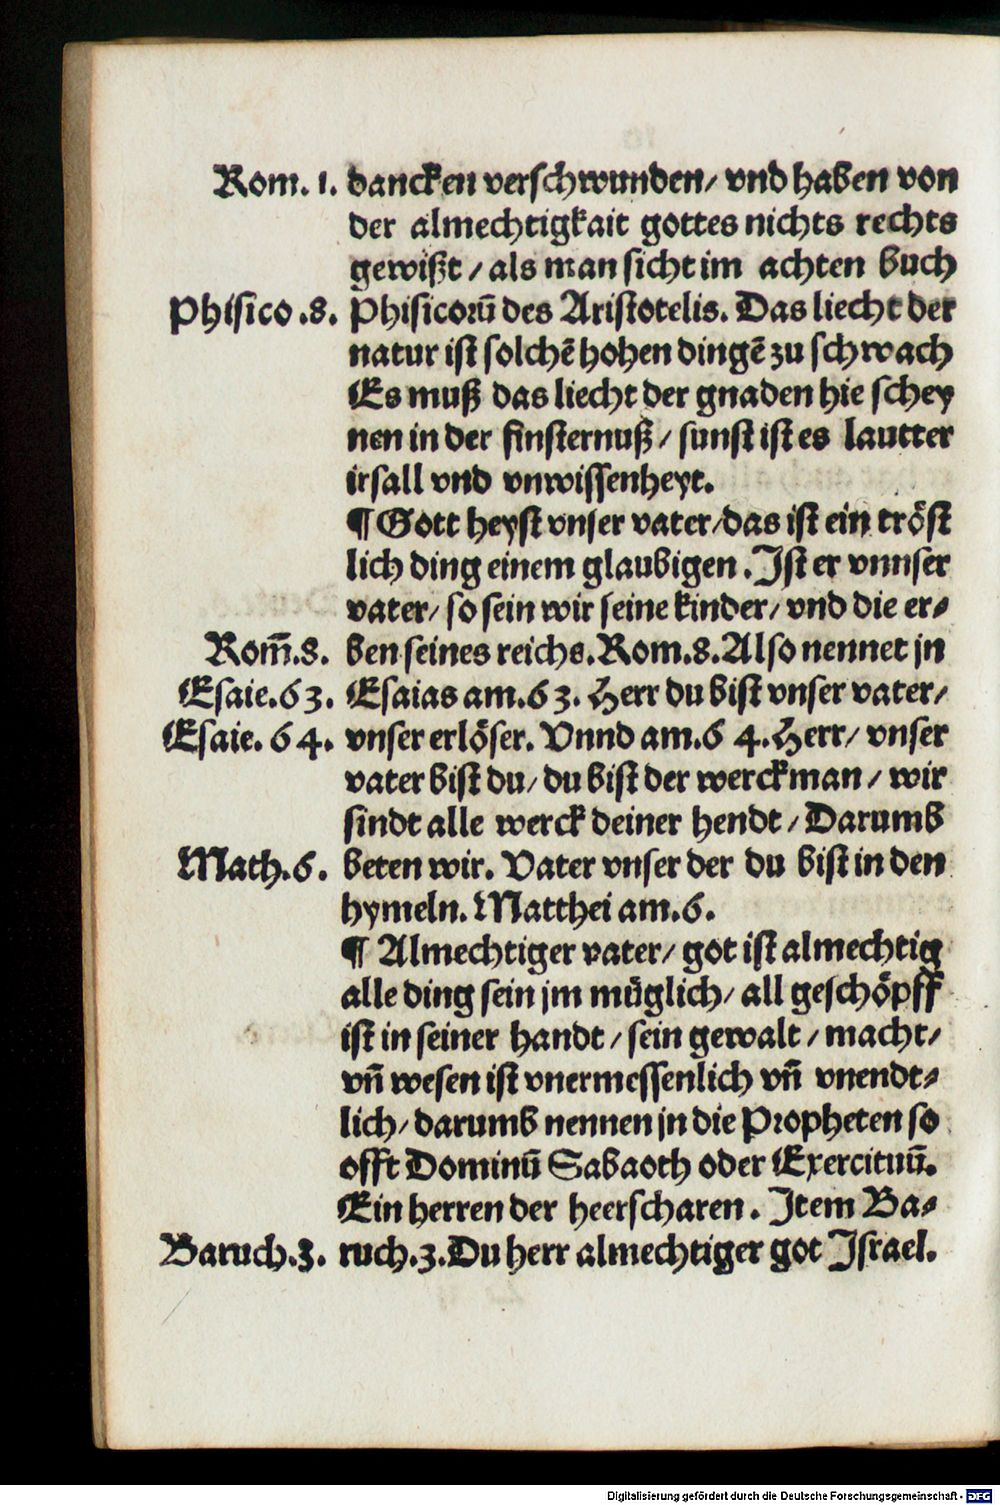 Rom. 1. dancken verschwunden/ vnd haben von
der almechtigkait gottes nichts rechts
gewißt / als man sicht im achten buch
Phisico .8. Phisicorū des Aristotelis. Das liecht der
natur ist solchē hohen dingē zu schwach
Es muß das liecht der gnaden hie schey
nen in der finsternuß / sunst ist es lautter
irsall vnd vnwissenheyt.
¶ Gott heyst vnser vater/das ist ein tröst
lich ding einem glaubigen. Ist er vnnser
vater/ so sein wir seine kinder/ vnd die er⸗
Rom̄.8. ben seines reichs. Rom.8. Also nennet jn
Esaie.63. Esaias am.63. Herr du bist vnser vater/
Esaie. 64. vnser erlöser. Vnnd am.64. Herr/ vnser
vater bist du/ du bist der werckman / wir
sindt alle werck deiner hendt / Darumb
Math.6. beten wir. Vater vnser der du bist in den
hymeln. Matthei am.6.
¶ Almechtiger vater/ got ist almechtig
alle ding sein jm müglich/ all geschöpff
ist in seiner handt / sein gewalt / macht/
vn̄ wesen ist vnermessenlich vn̄ vnendt⸗
lich/ darumb nennen jn die Propheten so
offt Dominū Sabaoth oder Exercituū.
Ein herren der heerscharen. Item Ba⸗
Baruch.3. ruch.3. Du herr almechtiger got Israel.
Digitalisierung gefördert durch die Deutsche Forschungsgemeinschaft - DFG